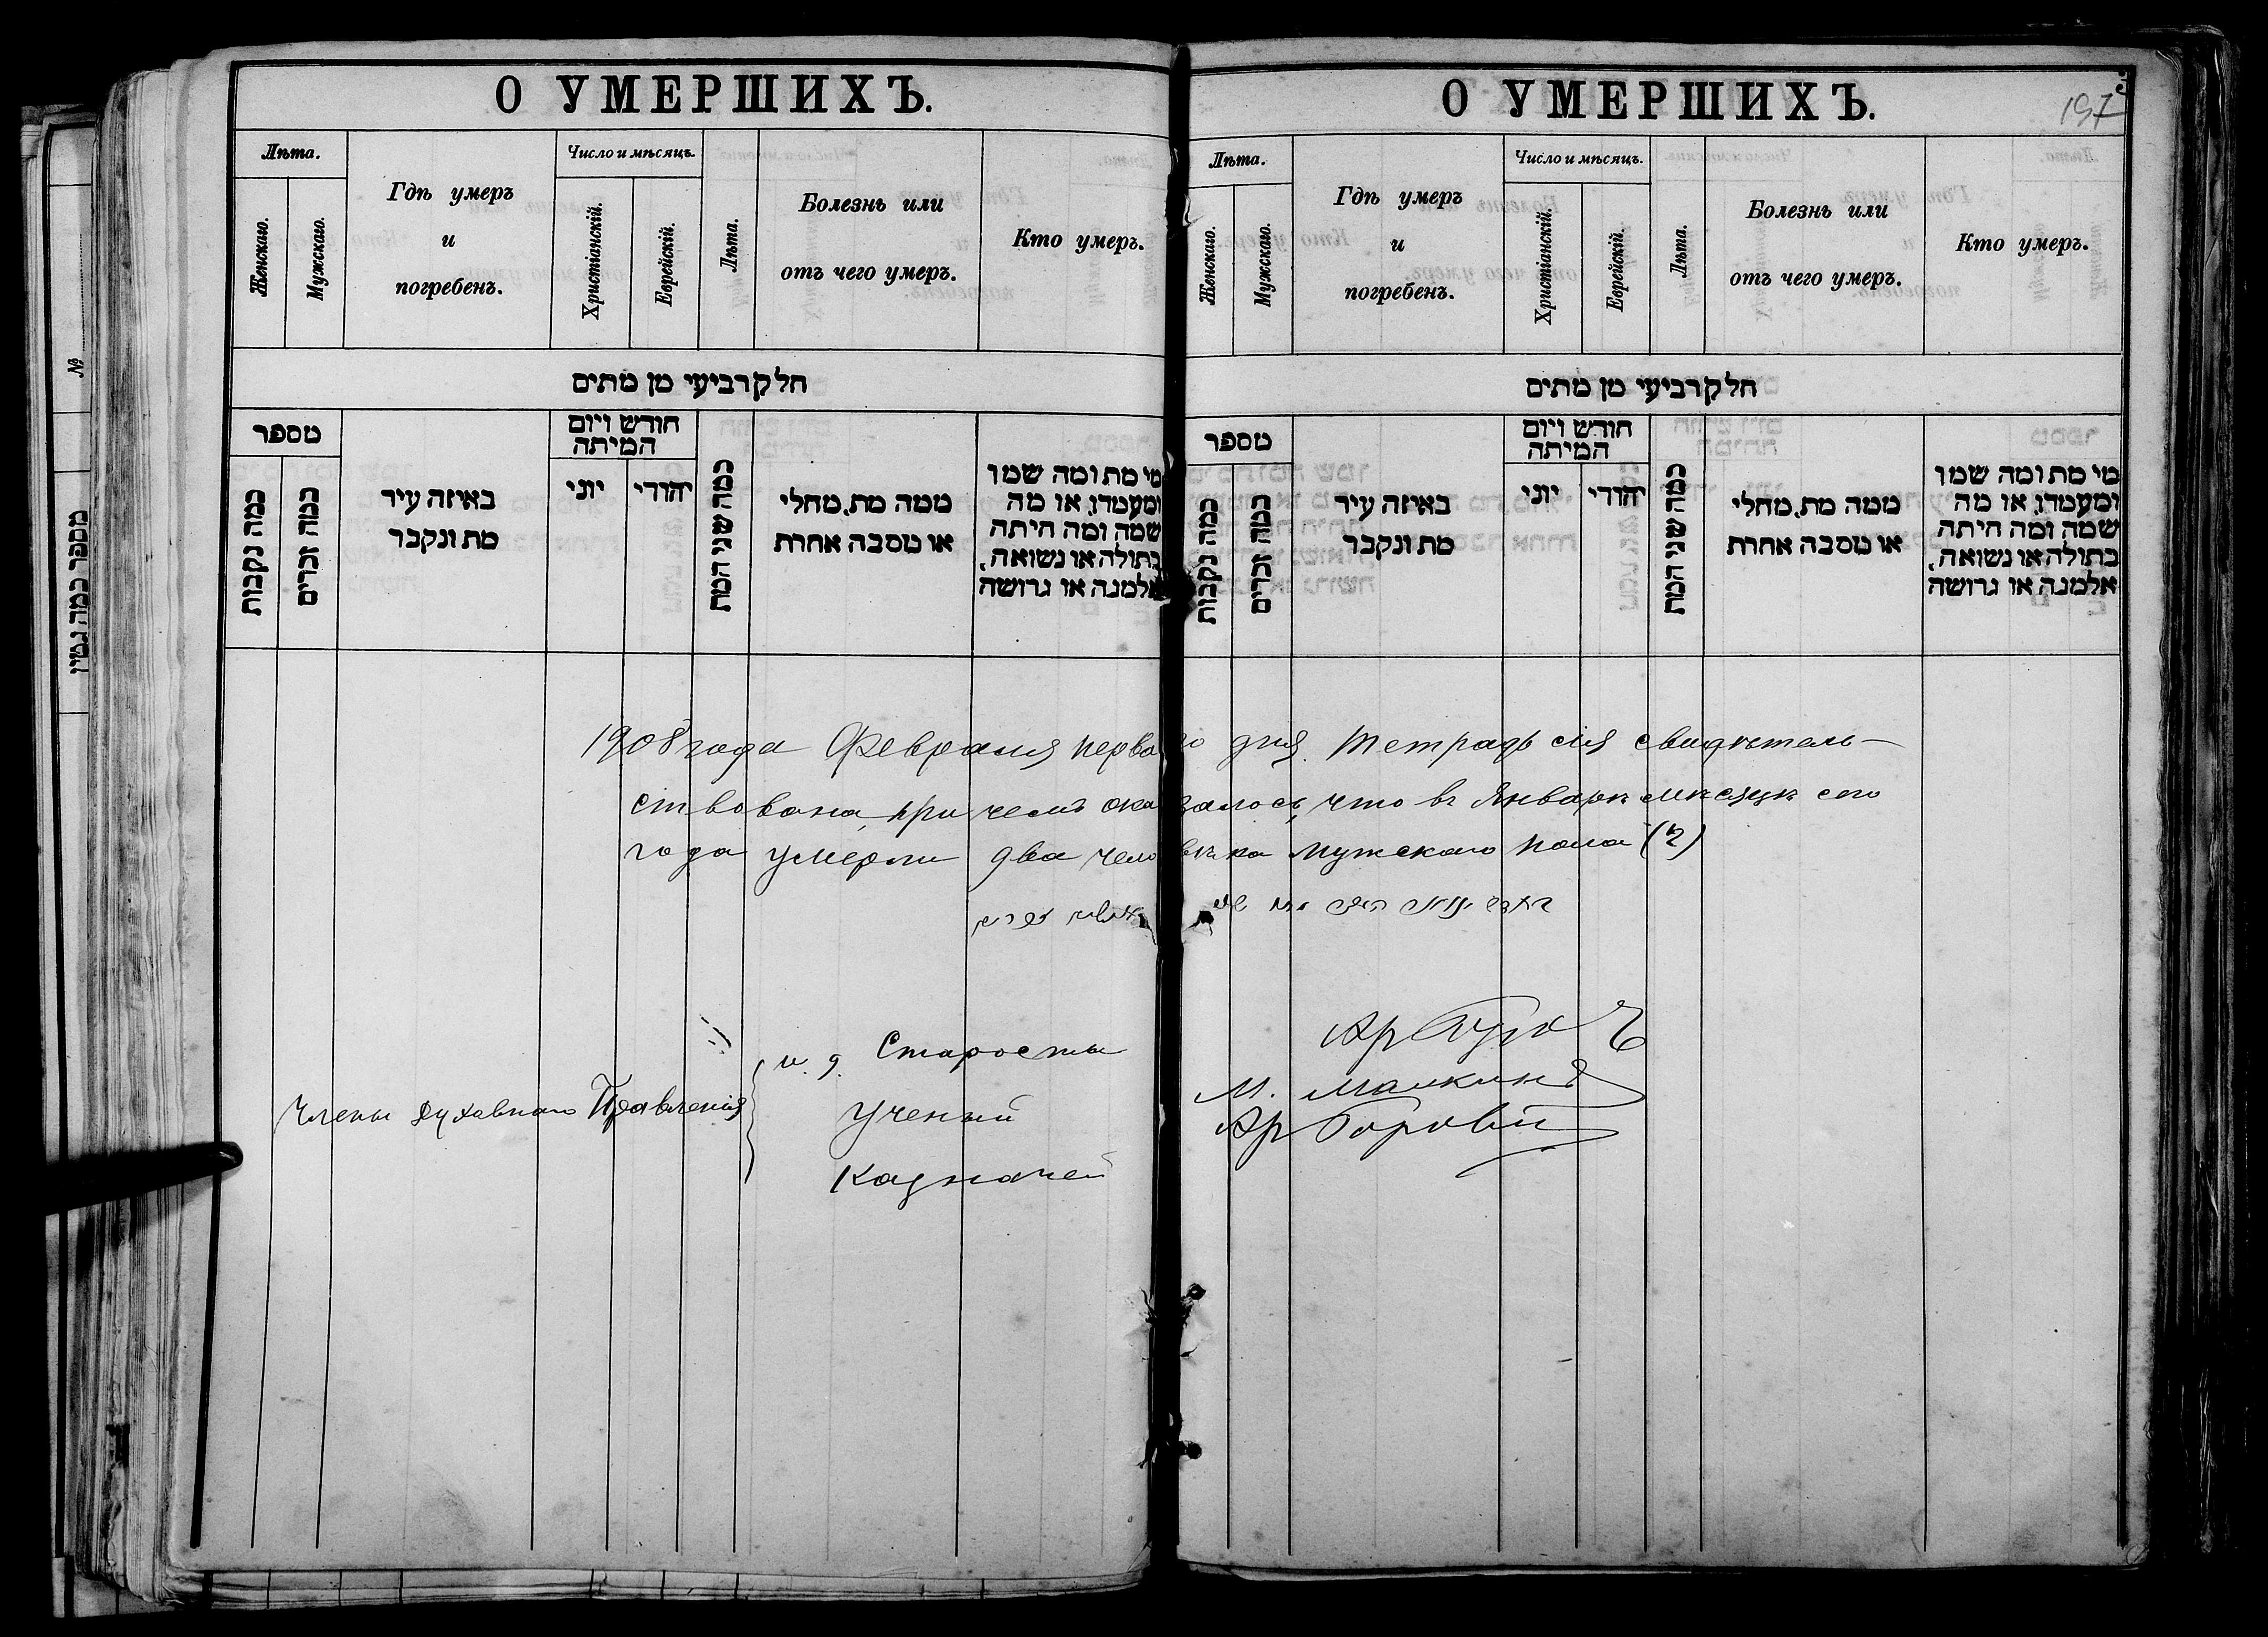 О УМЕРШИХЪ.
Лѣта.
Женскаго.
Мужскаго.
Гдѣ умеръ
и
погребенъ.
Число и мѣсяцъ.
Христіанскій.
Еврейскій.
Лѣта.
Болезнь или
отъ чего умеръ.
Кто умеръ.
חלק רביעי מן מתים
מספר
כמה נקבות
כמה זכרים
באיזה עיר
מת ונקבר
חודש ויום
המיתה
יוני
יהודי
כמה שני המת
ממה מת, מחלי
או מסבה אחרת
מי מת ומה שמו
ומעמדו, או מה
שמה ומה היתה
בתולה או נשואה,
אלמנה או גרושה
О УМЕРШИХЪ.
197
Лѣта.
Женскаго.
Мужскаго.
Гдѣ умеръ
и
погребенъ.
Число и мѣсяцъ.
Христіанскій.
Еврейскій.
Лѣта.
Болезнь или
отъ чего умеръ.
Кто умеръ.
חלק רביעי מן מתים
מספר
כמה נקבות
כמה זכרים
באיזה עיר
מת ונקבר
חודש ויום
המיתה
יוני
יהודי
כמה שני המת
ממה מת, מחלי
או מסבה אחרת
מי מת ומה שמו
ומעמדו, או מה
שמה ומה היתה
בתולה או נשואה,
אלמנה או גרושה
1908 года Февраля перваго дня. Тетрадь сія свидѣтель-
ствована, при чемъ оказалось, что въ Январѣ мѣсяцѣ сего
года умерли два человѣка мужскаго пола (2)
и. д. Старосты
Члены Духовнаго Правленія
Ученый
М. Малкинъ
Казначей
№
מספר כמה גטין